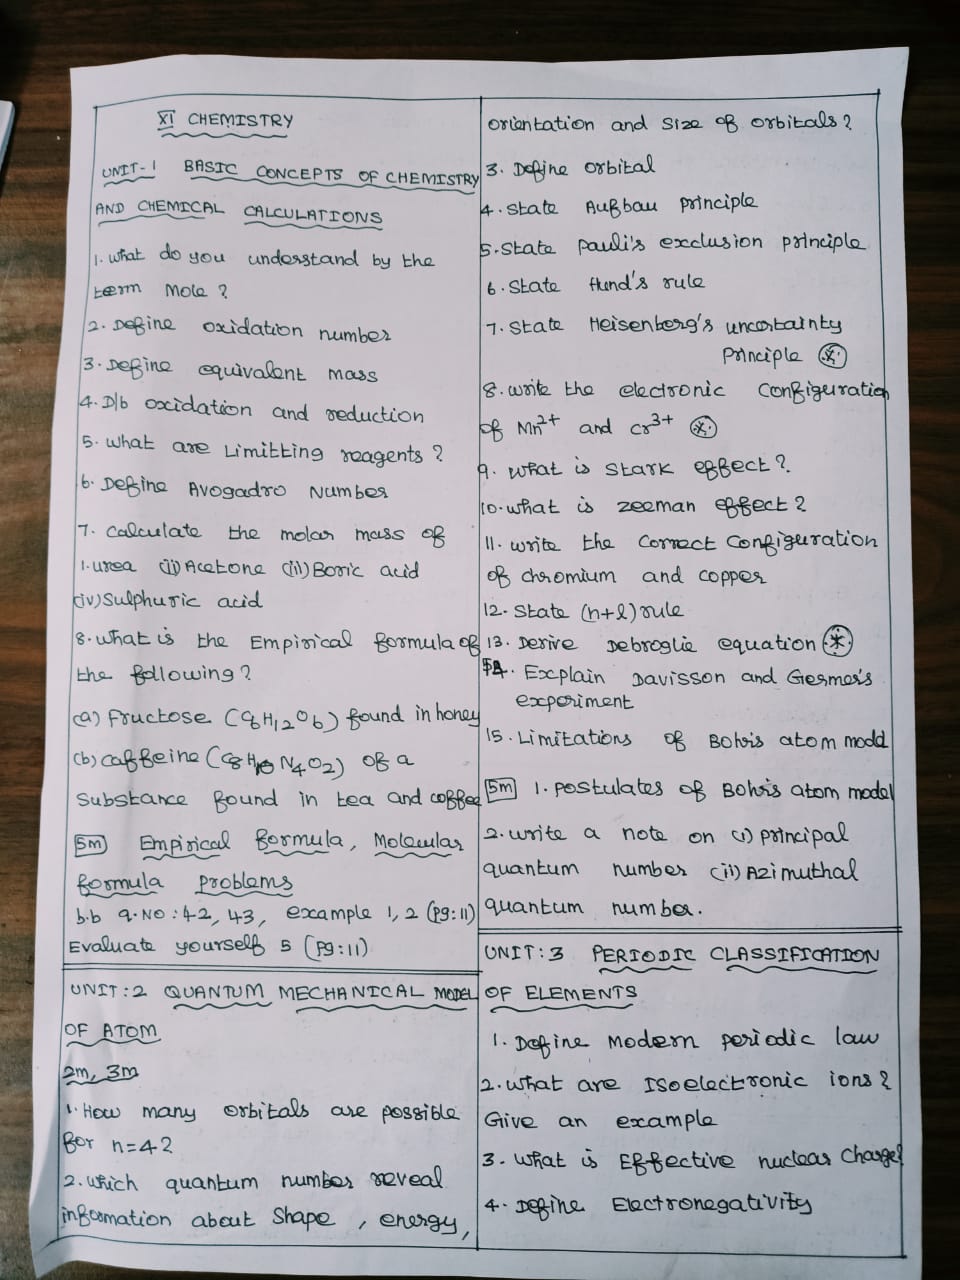 XI CHEMISTRY
UNIT-1 BASIC CONCEPTS OF CHEMISTRY
AND CHEMICAL CALCULATIONS
1. What do you understand by the
term Mole ?
2. Define oxidation number
3. Define equivalent mass
4. D/b oxidation and reduction
5. What are Limitting reagents ?
6. Define Avogadro Number
7. Calculate the molar mass of
1. urea (ii) Acetone (iii) Boric acid
(iv) Sulphuric acid
8. What is the Empirical formula of
the following ?
(a) Fructose (C6H12O6) found in honey
(b) caffeine (C8H10N4O2) of a
Substance found in tea and coffee
5m Empirical formula, Molecular
formula problems
b.b q.No : 42, 43, example 1, 2 (pg:11)
Evaluate yourself 5 (pg:11)
UNIT : 2 QUANTUM MECHANICAL MODEL
OF ATOM
2m, 3m
1. How many orbitals are possible
for n=4?
2. which quantum number reveal
information about Shape, energy,
orientation and size of orbitals ?
3. Define orbital
4. State Aufbau principle
5. State pauli's exclusion principle
6. State Hund's rule
7. State Heisenberg's uncertainty
Principle *
8. write the electronic Configuration
of Mn2+ and cr3+ *
9. What is Stark effect ?
10. what is zeeman effect ?
11. write the Correct Configuration
of chromium and copper
12. State (n+l) rule
13. Derive Debroglie equation *
14. Explain Davisson and Germer's
experiment
15. Limitations of Bohr's atom model
5m 1. Postulates of Bohr's atom model
2. write a note on (i) principal
quantum number (ii) Azimuthal
quantum number.
UNIT : 3 PERIODIC CLASSIFICATION
OF ELEMENTS
1. Define Modern periodic law
2. What are Isoelectronic ions ?
Give an example
3. What is Effective nuclear Charge?
4. Define Electronegativity